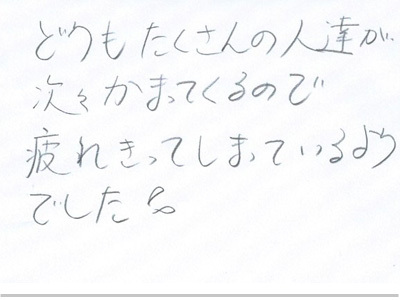 どうもたくさんの人達が
次々かまってくるので
疲れきってしまっているよう
でした。